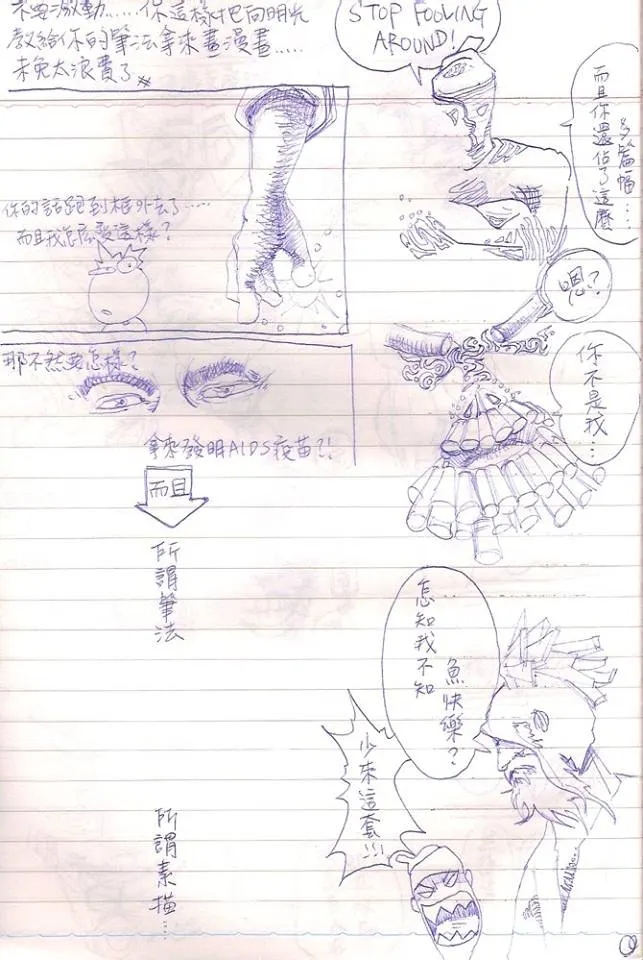 不要激動......你這樣把向明光
教給你的筆法拿來畫漫畫.....
未免太浪費了
STOP FOOLING
AROUND!
而且你還佔了這麼
多篇幅....
你的話跑到框外去了.....
而且我怎麼變這樣?
嗯?
你不是我...
那不然要怎樣?
拿來發明AIDS疫苗?!
而且
所謂筆法
怎知我不知
魚快樂?
少來這套!!!
所謂素描....